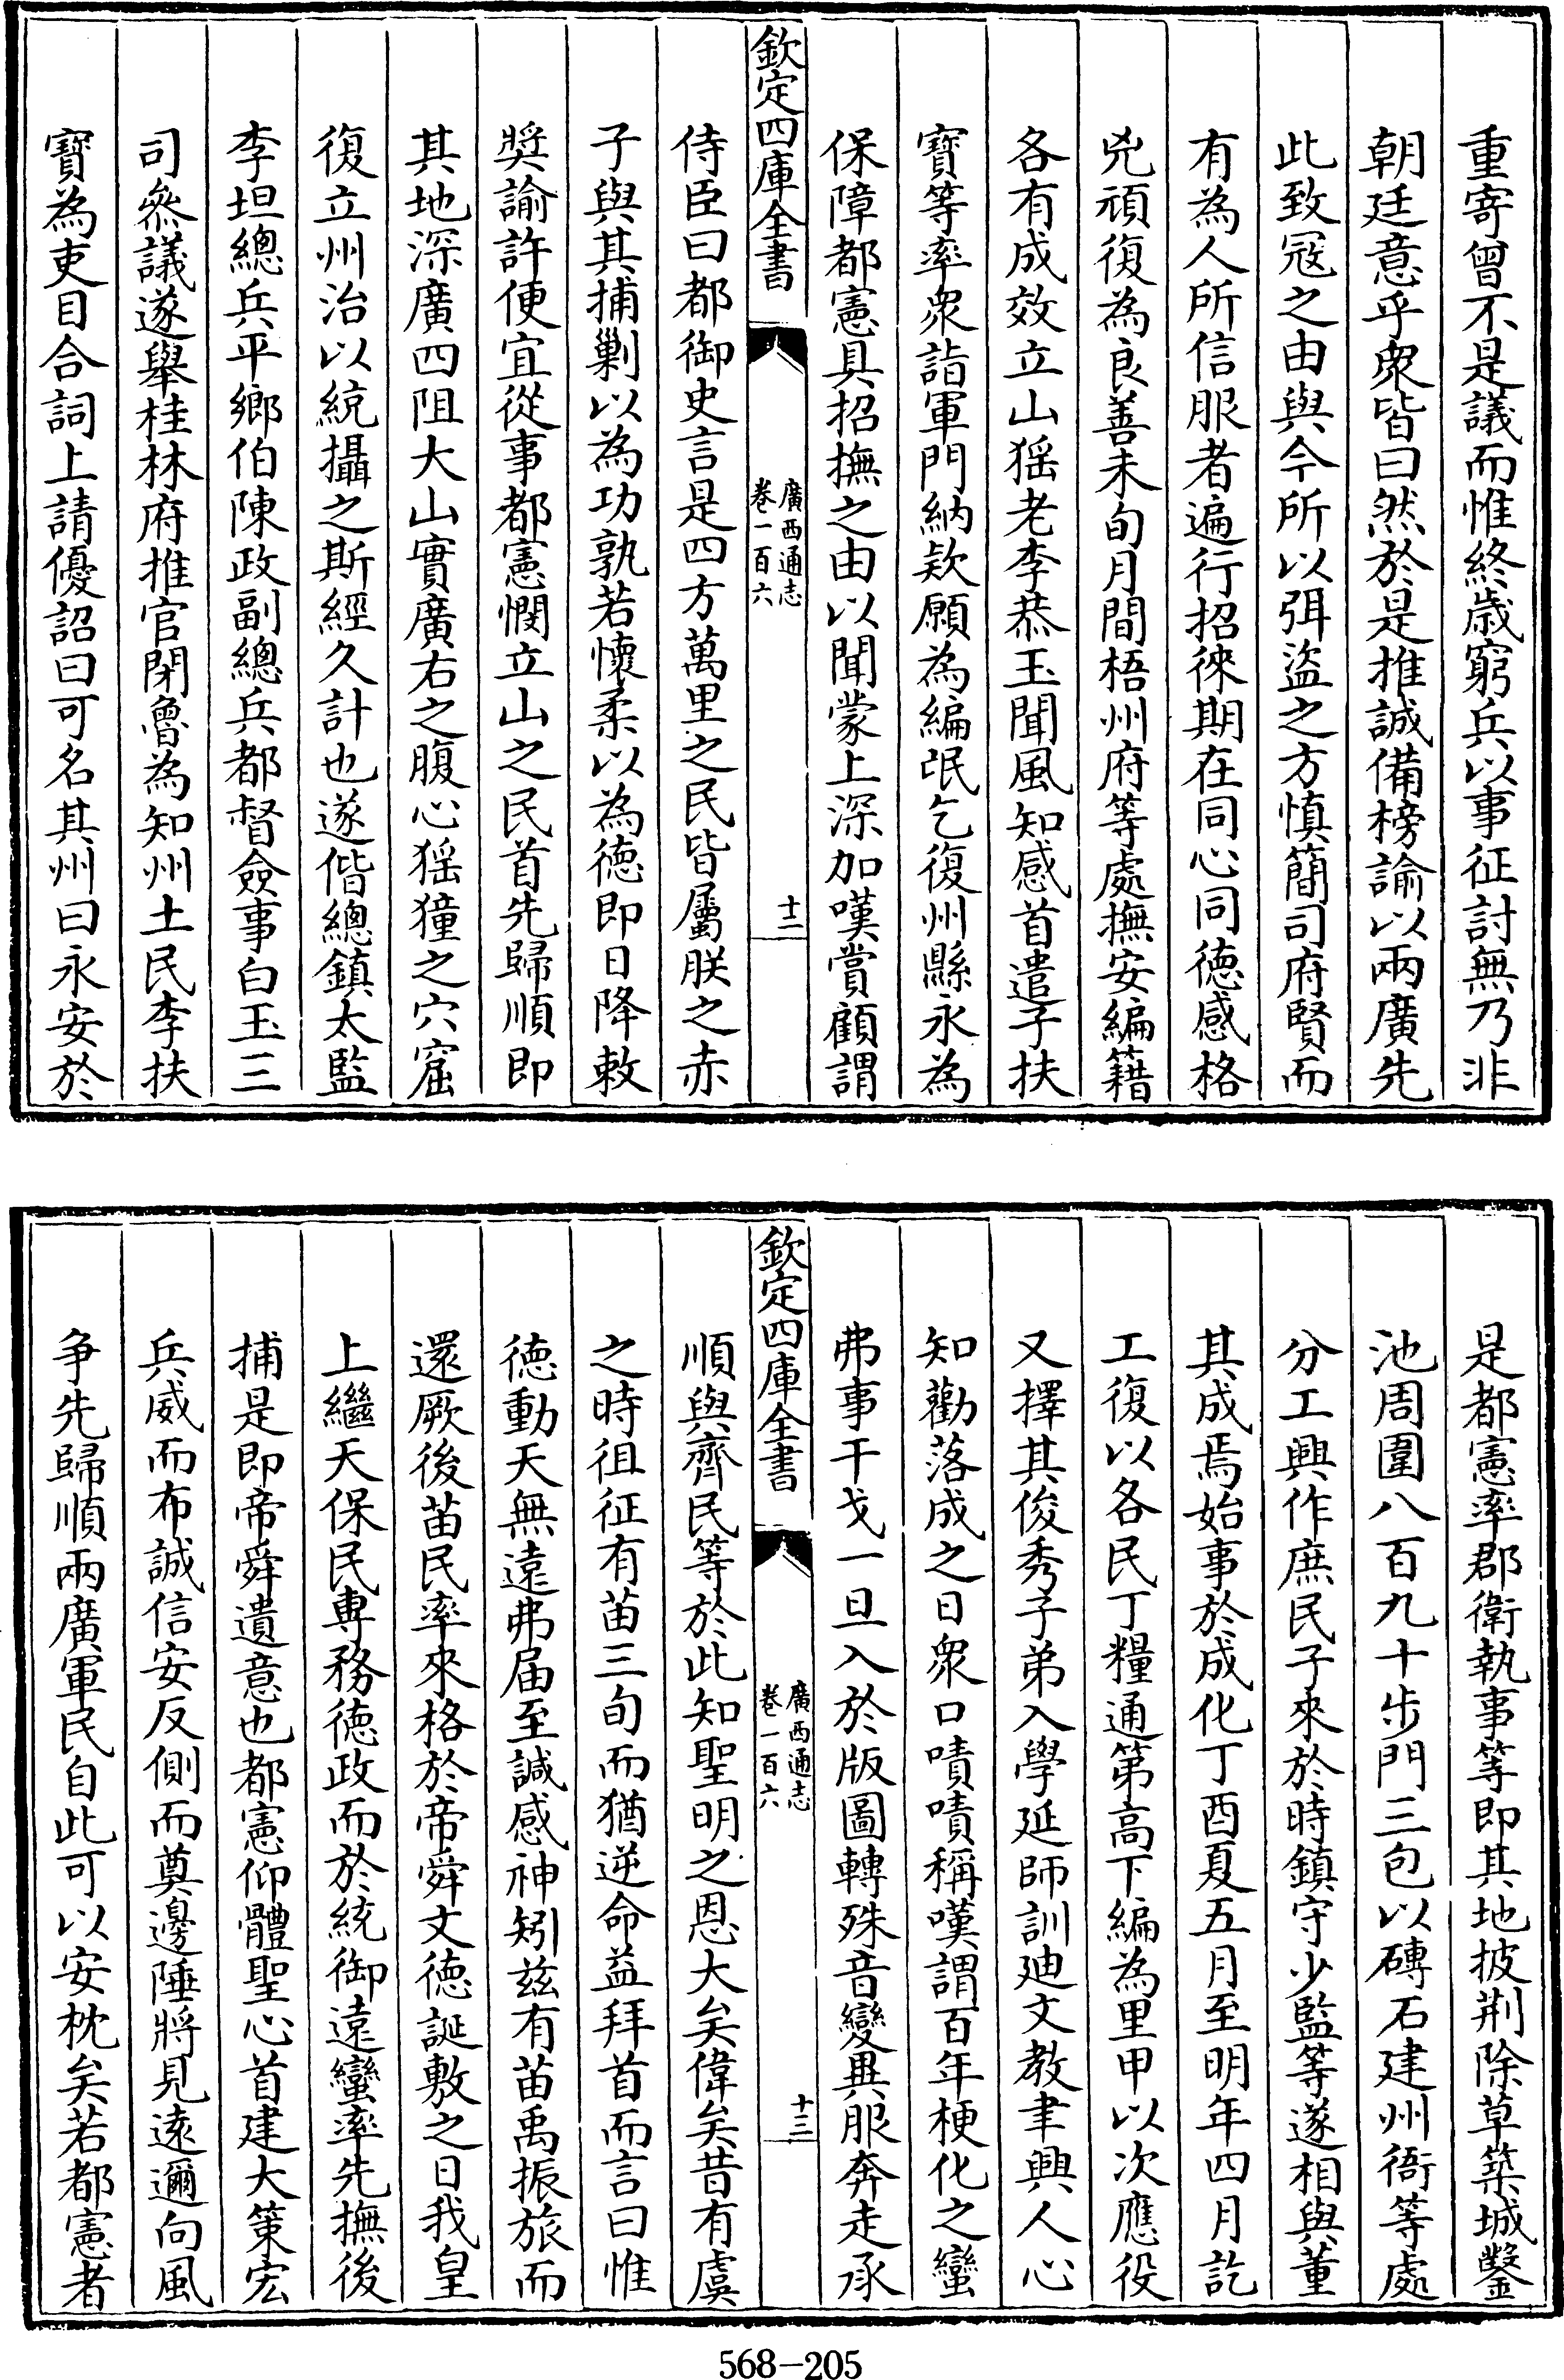 重寄曾不是議而惟終歲窮兵以事征討無乃非
朝廷意乎衆皆曰然於是推誠備榜諭以兩廣先
此致冦之由與今所以弭盜之方慎簡司府賢而
有為人所信服者遍行招徠期在同心同徳感格
兇頑復為良善未旬月間梧州府等處撫安編籍
各有成效立山猺老李恭玉聞風知感首遣子扶
寳等率衆詣軍門納欵願為編氓乞復州縣永為
保障都憲具招撫之由以聞蒙上深加嘆賞顧謂
欽定四庫全書
廣西通志
卷一百六
十二
侍臣曰都御史言是四方萬里之民皆屬朕之赤
子與其捕剿以為功孰若懷柔以為徳即日降敕
奬諭許便宜從事都憲憫立山之民首先歸順即
其地深廣四阻大山實廣右之腹心猺獞之穴窟
復立州治以統攝之斯經久計也遂偕總鎮太監
李坦總兵平鄉伯陳政副總兵都督僉事白玉三
司叅議遂舉桂林府推官閉魯為知州土民李扶
寳為吏目合詞上請優詔曰可名其州曰永安於
是都憲率郡衛執事等即其地披荆除草築城鑿
池周圍八百九十步門三包以磚石建州衙等處
分工興作庶民子來於時鎮守少監等遂相與董
其成焉始事於成化丁酉夏五月至明年四月訖
工復以各民丁糧通第高下編為里甲以次應役
又擇其俊秀子弟入學延師訓廸文教聿興人心
知勸落成之日衆口嘖嘖稱嘆謂百年梗化之蠻
弗事干戈一旦入於版圖轉殊音變異服奔走承
欽定四庫全書
廣西通志
卷一百六
十三
順與齊民等於此知聖明之恩大矣偉矣昔有虞
之時徂征有苗三旬而猶逆命益拜首而言曰惟
徳動天無遠弗届至諴感神矧兹有苗禹振旅而
還厥後苗民率來格於帝舜文徳誕敷之日我皇
上繼天保民専務徳政而於統御遠蠻率先撫後
捕是即帝舜遺意也都憲仰體聖心首建大策宏
兵威而布誠信安反側而奠邊陲將見遠邇向風
争先歸順兩廣軍民自此可以安枕矣若都憲者
568-205